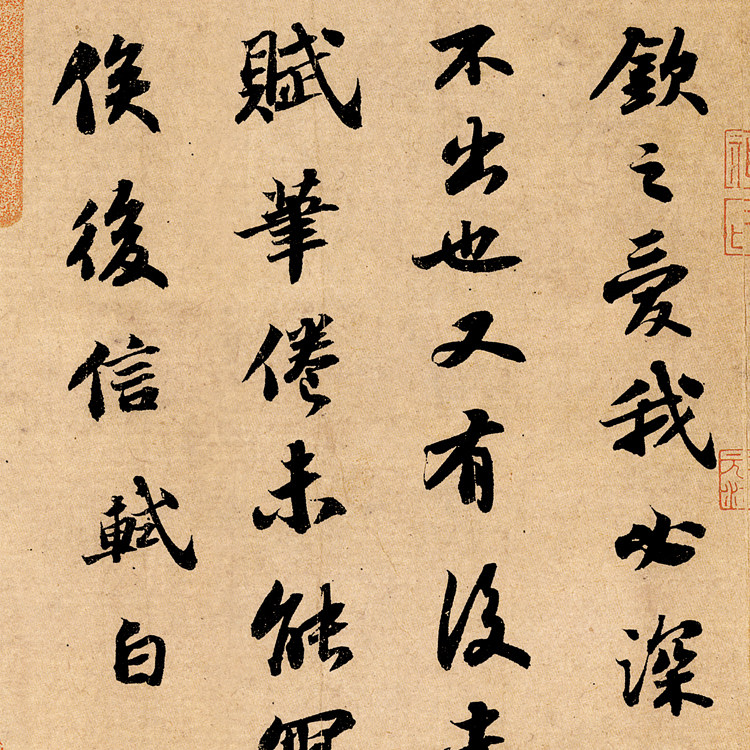 欽之愛我必深
不出也又有後赤
賦筆倦未能寫
俟後信軾白